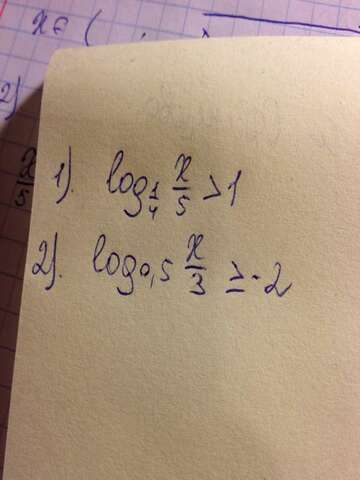 x ∈ (
2)
x/5
1). log_{1/4} x/5 > 1
2). log_{0,5} x/3 ≥ -2